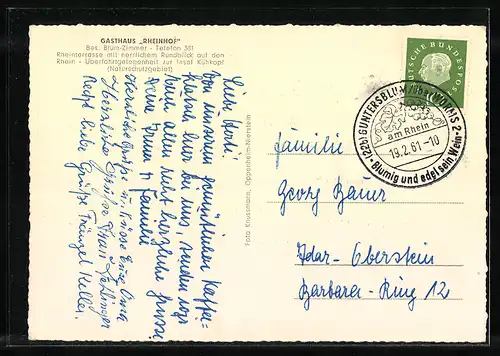 GASTHAUS „RHEINHOF"
Bes. Brum-Zimmer - Telefon 381
Rheinterrasse mit herrlichem Rundblick auf den
Rhein - Überfahrtgelegenheit zur Insel Kühkopf
(Naturschutzgebiet)
Von unserem gemütlichen Kaffee-
klatsch hier bei uns, senden wir
Ihnen allen recht herzliche Grüsse
Familie
Herzliche Grüße
Herzliche Grüße Frau
Recht liebe Grüße
Foto Knussmann, Oppenheim-Nierstein
DEUTSCHE BUNDESPOST
(22b) GUNTERSBLUM über WORMS 2
am Rhein
19.2.61-10
Blumig und edel sein Wein
Familie
Georg Bauer
Idar-Oberstein
Barbara-Ring 12